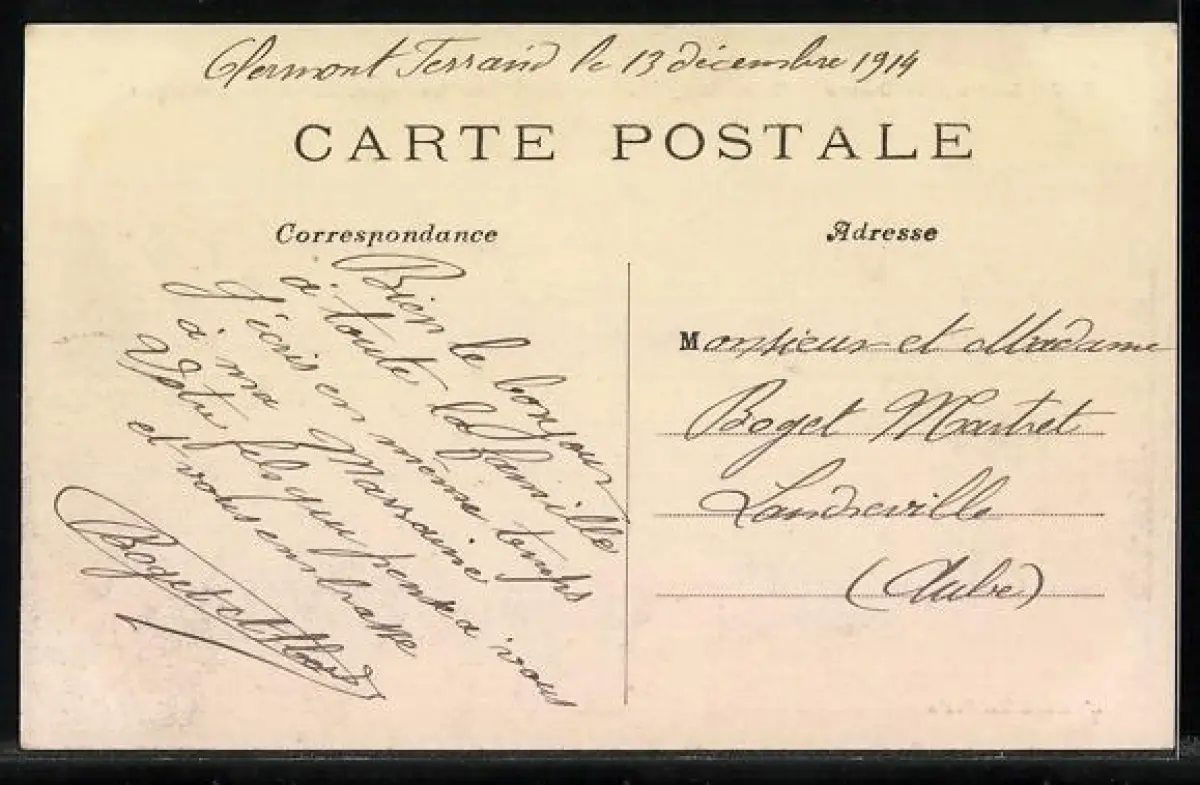 Clermont Ferrand le 13 décembre 1914
CARTE POSTALE
Correspondance
Adresse
Bien le bonjour
à toute la famille
J'écris en même temps
à ma Marraine
Votre fils qui pense à vous
et vous embrasse
Boget
Monsieur et Madame
Boget Martret
Landreville
(Aube)